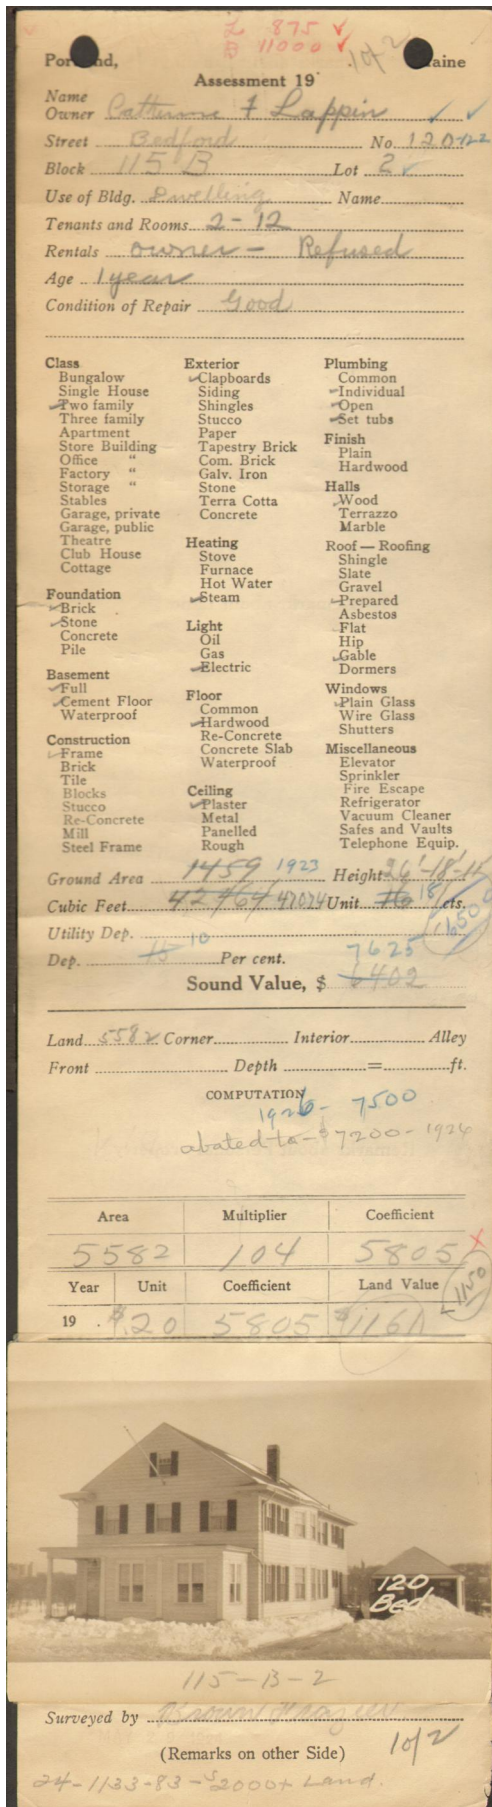 L 875 ✓
B 11000 ✓
1 of 2
Portland, Maine
Assessment 19
Name
Owner Catherine F Lappin
Street Bedford No. 120-122
Block 115 B Lot 2
Use of Bldg. Dwelling Name
Tenants and Rooms 2-12
Rentals owner - Refused
Age 1 year
Condition of Repair Good
Class
Bungalow
Single House
✓Two family
Three family
Apartment
Store Building
Office "
Factory "
Storage "
Stables
Garage, private
Garage, public
Theatre
Club House
Cottage
Foundation
✓Brick
✓Stone
Concrete
Pile
Basement
✓Full
✓Cement Floor
Waterproof
Construction
✓Frame
Brick
Tile
Blocks
Stucco
Re-Concrete
Mill
Steel Frame
Exterior
✓Clapboards
Siding
Shingles
Stucco
Paper
Tapestry Brick
Com. Brick
Galv. Iron
Stone
Terra Cotta
Concrete
Heating
Stove
Furnace
Hot Water
✓Steam
Light
Oil
Gas
✓Electric
Floor
Common
✓Hardwood
Re-Concrete
Concrete Slab
Waterproof
Ceiling
✓Plaster
Metal
Panelled
Rough
Plumbing
Common
✓Individual
✓Open
✓Set tubs
Finish
Plain
Hardwood
Halls
✓Wood
Terrazzo
Marble
Roof — Roofing
Shingle
Slate
Gravel
✓Prepared
Asbestos
Flat
Hip
✓Gable
Dormers
Windows
✓Plain Glass
Wire Glass
Shutters
Miscellaneous
Elevator
Sprinkler
Fire Escape
Refrigerator
Vacuum Cleaner
Safes and Vaults
Telephone Equip.
Ground Area 1459 1923 Height 26'-18'
Cubic Feet 47074 Unit 16 18 cts.
Utility Dep.
Dep. 15 10 Per cent. 7625
Sound Value, $ 6402
Land 5582 Corner Interior Alley
Front Depth = ft.
COMPUTATION
1926 - 7500
abated to - $7200 - 1926
Area Multiplier Coefficient
5582 104 5805
Year Unit Coefficient Land Value
1150
19 $.20 5805 $1161
120
Bed.
115-B-2
Surveyed by
(Remarks on other Side) 1 of 2
24-1133-83-$2000+ Land.